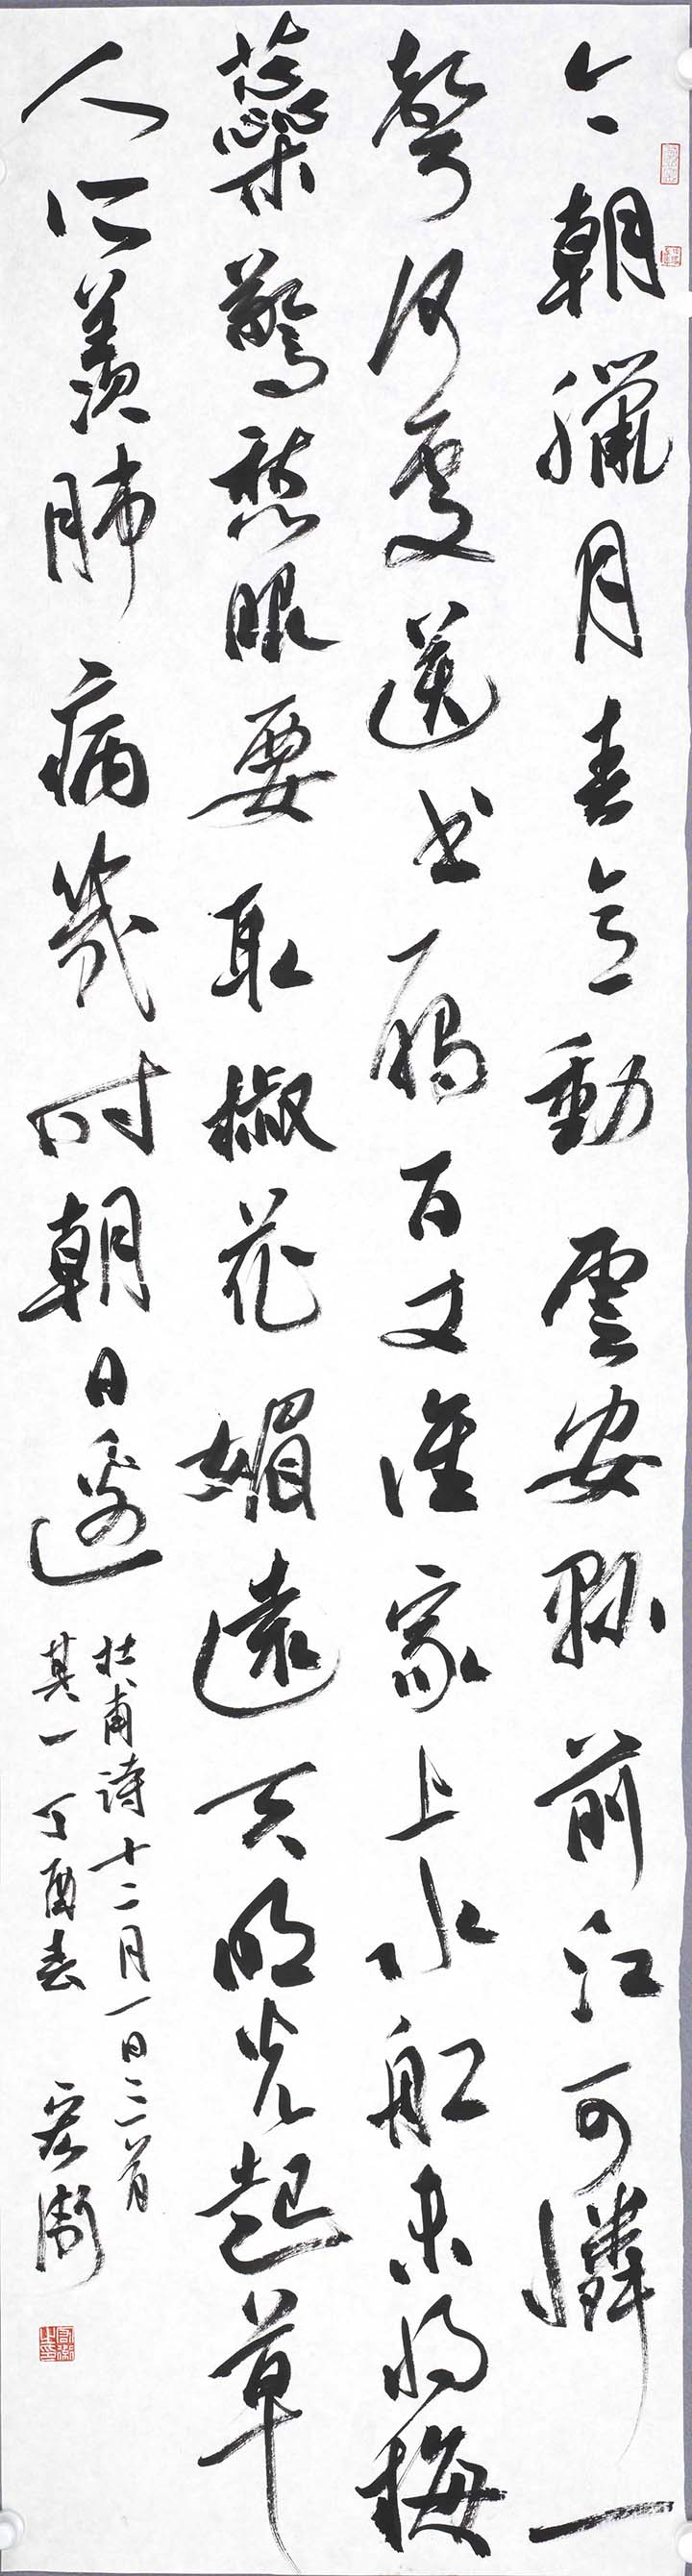 今朝臘月春意動雲安縣前江可憐一
聲何處送书鴈百丈誰家上水舡未將梅
蘂驚愁眼要取椒花媚遠天明光起草
人所羨肺病幾时朝日邊
杜甫詩十二月一日三首
其一丁酉春